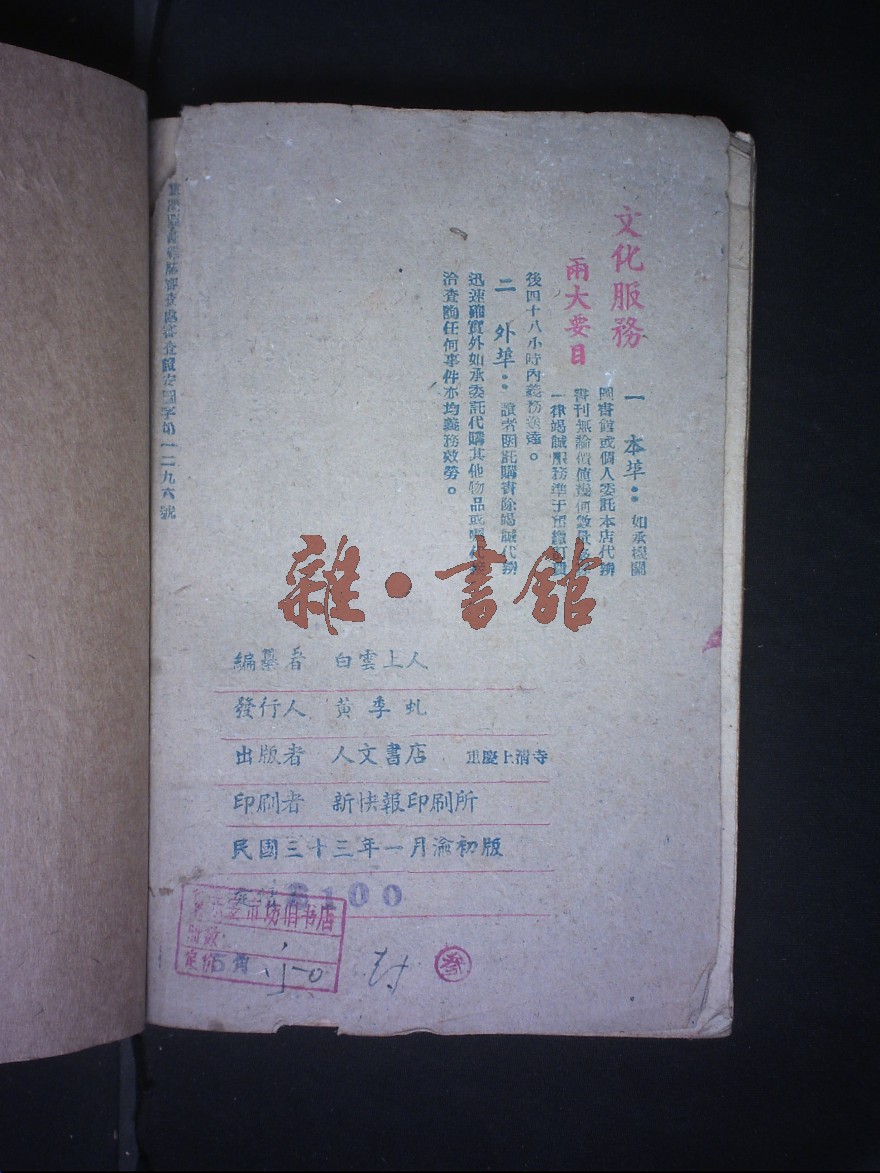 文化服務
兩大要目
一 本埠：如承機關
圖書館或個人委託本店代辦
書刊無論價值幾何數量多
一律竭誠服務準于
後四十八小時內義務送達。
二 外埠：讀者函託購書除竭誠代辦
迅速確實外如承委託代購其他物品或
洽查詢任何事件亦均義務效勞。
審查處審查證安圖字第一二九六號
雜·書館
編纂者 白雲上人
發行人 黃季虬
出版者 人文書店 重慶上清寺
印刷者 新快報印刷所
民國三十三年一月渝初版
100
市坊旧书店
册数
定价
.50